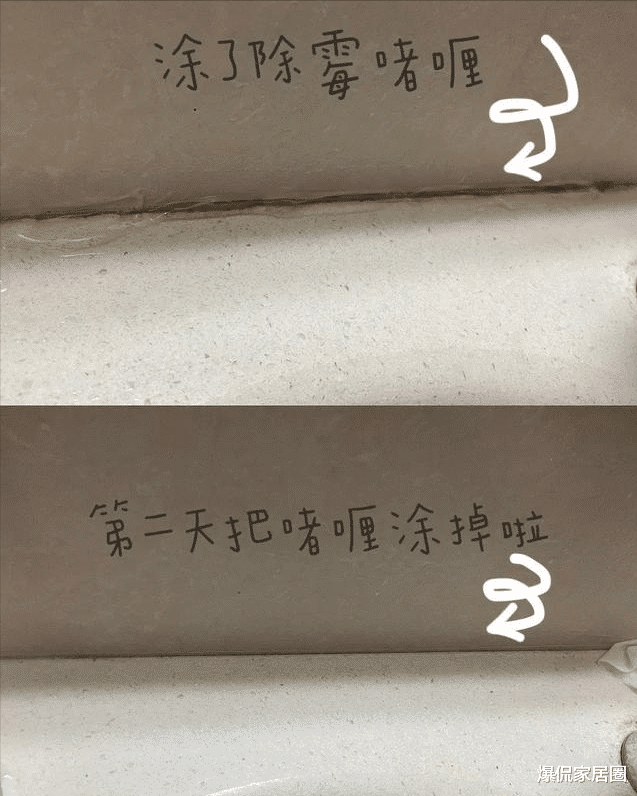 涂了除霉啫喱
第二天把啫喱涂掉啦
爆侃家居圈